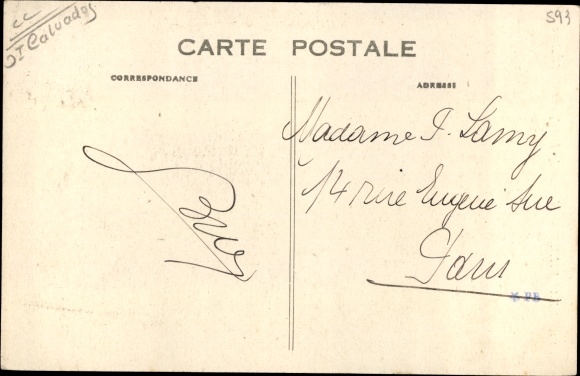 CC
Calvados
593
CARTE POSTALE
CORRESPONDANCE
ADRESSE
Madame J. Lamy
14 rue Eugène Sue
Paris